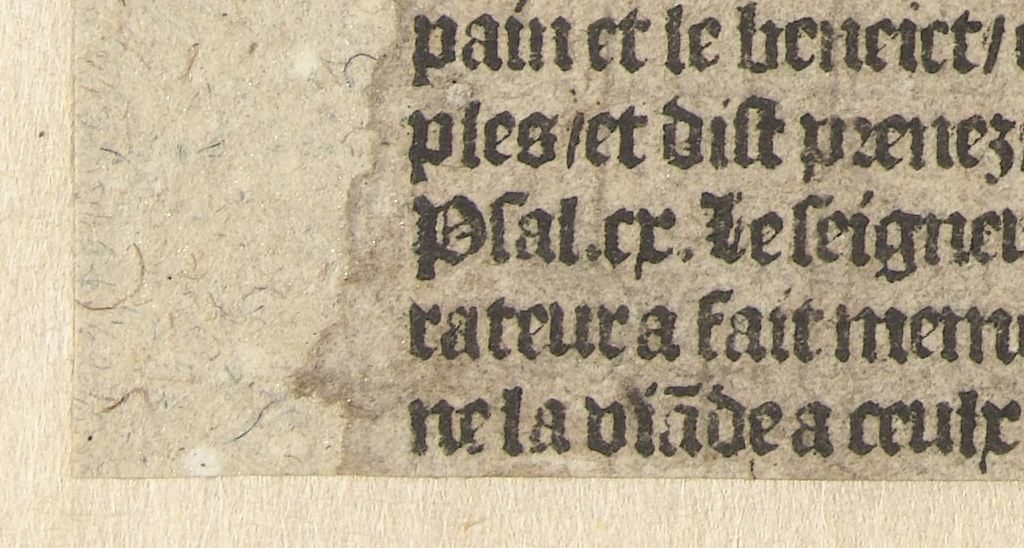 pain et le beneict/
ples/et dist prenez
Psal.cx. Le seigneu
rateur a fait mem
ne la viãde a ceulx